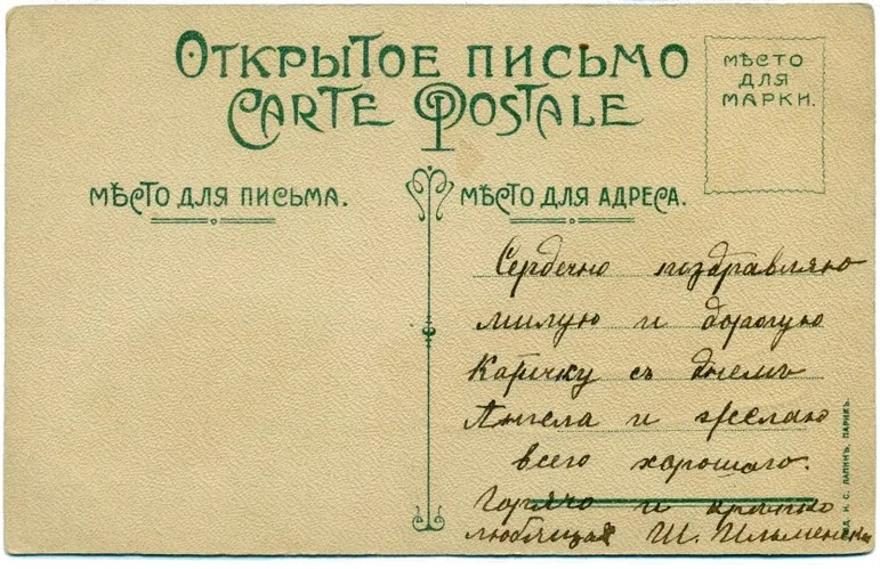 Открытое письмо
Carte Postale
Мѣсто
для
марки.
Мѣсто для письма.
Мѣсто для адреса.
Сердечно поздравляю
милую и дорогую
Каричку съ днемъ
Ангела и желаю
всего хорошаго.
Горячо и крѣпко
любящая Ш. Ильменски
И. С. Лапинъ, Парижъ.